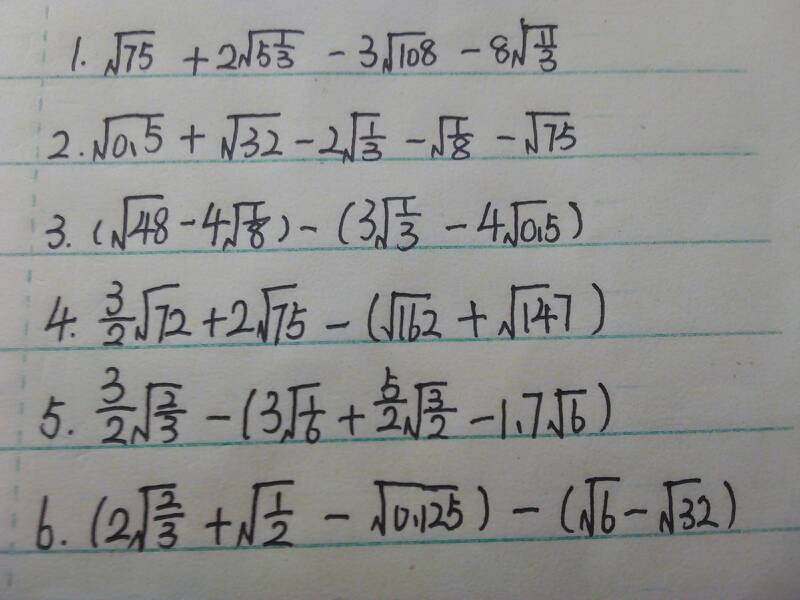 1. √75 + 2√5 1/3 - 3√108 - 8√11/3
2. √0.5 + √32 - 2√1/3 - √1/8 - √75
3. (√48 - 4√1/8) - (3√1/3 - 4√0.5)
4. 3/2√72 + 2√75 - (√162 + √147)
5. 3/2√2/3 - (3√1/6 + 5/2√3/2 - 1.7√6)
6. (2√2/3 + √1/2 - √0.125) - (√6 - √32)